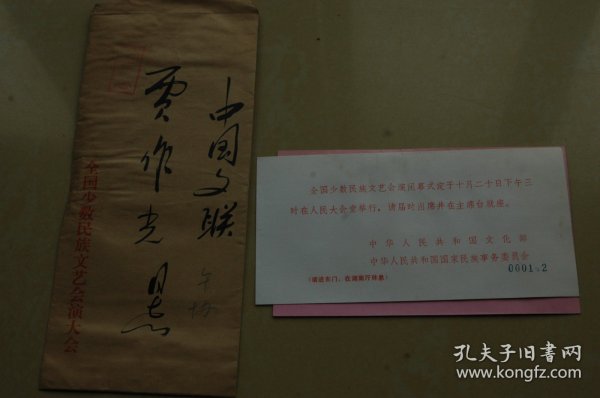 中国文联
贾作光同志
全国少数民族文艺会演大会
全国少数民族文艺会演闭幕式定于十月二十日下午三
时在人民大会堂举行，请届时出席并在主席台就座。
中华人民共和国文化部
中华人民共和国国家民族事务委员会
0001.2
（请进东门，在湖南厅休息）
孔夫子旧书网
www.kongfz.com